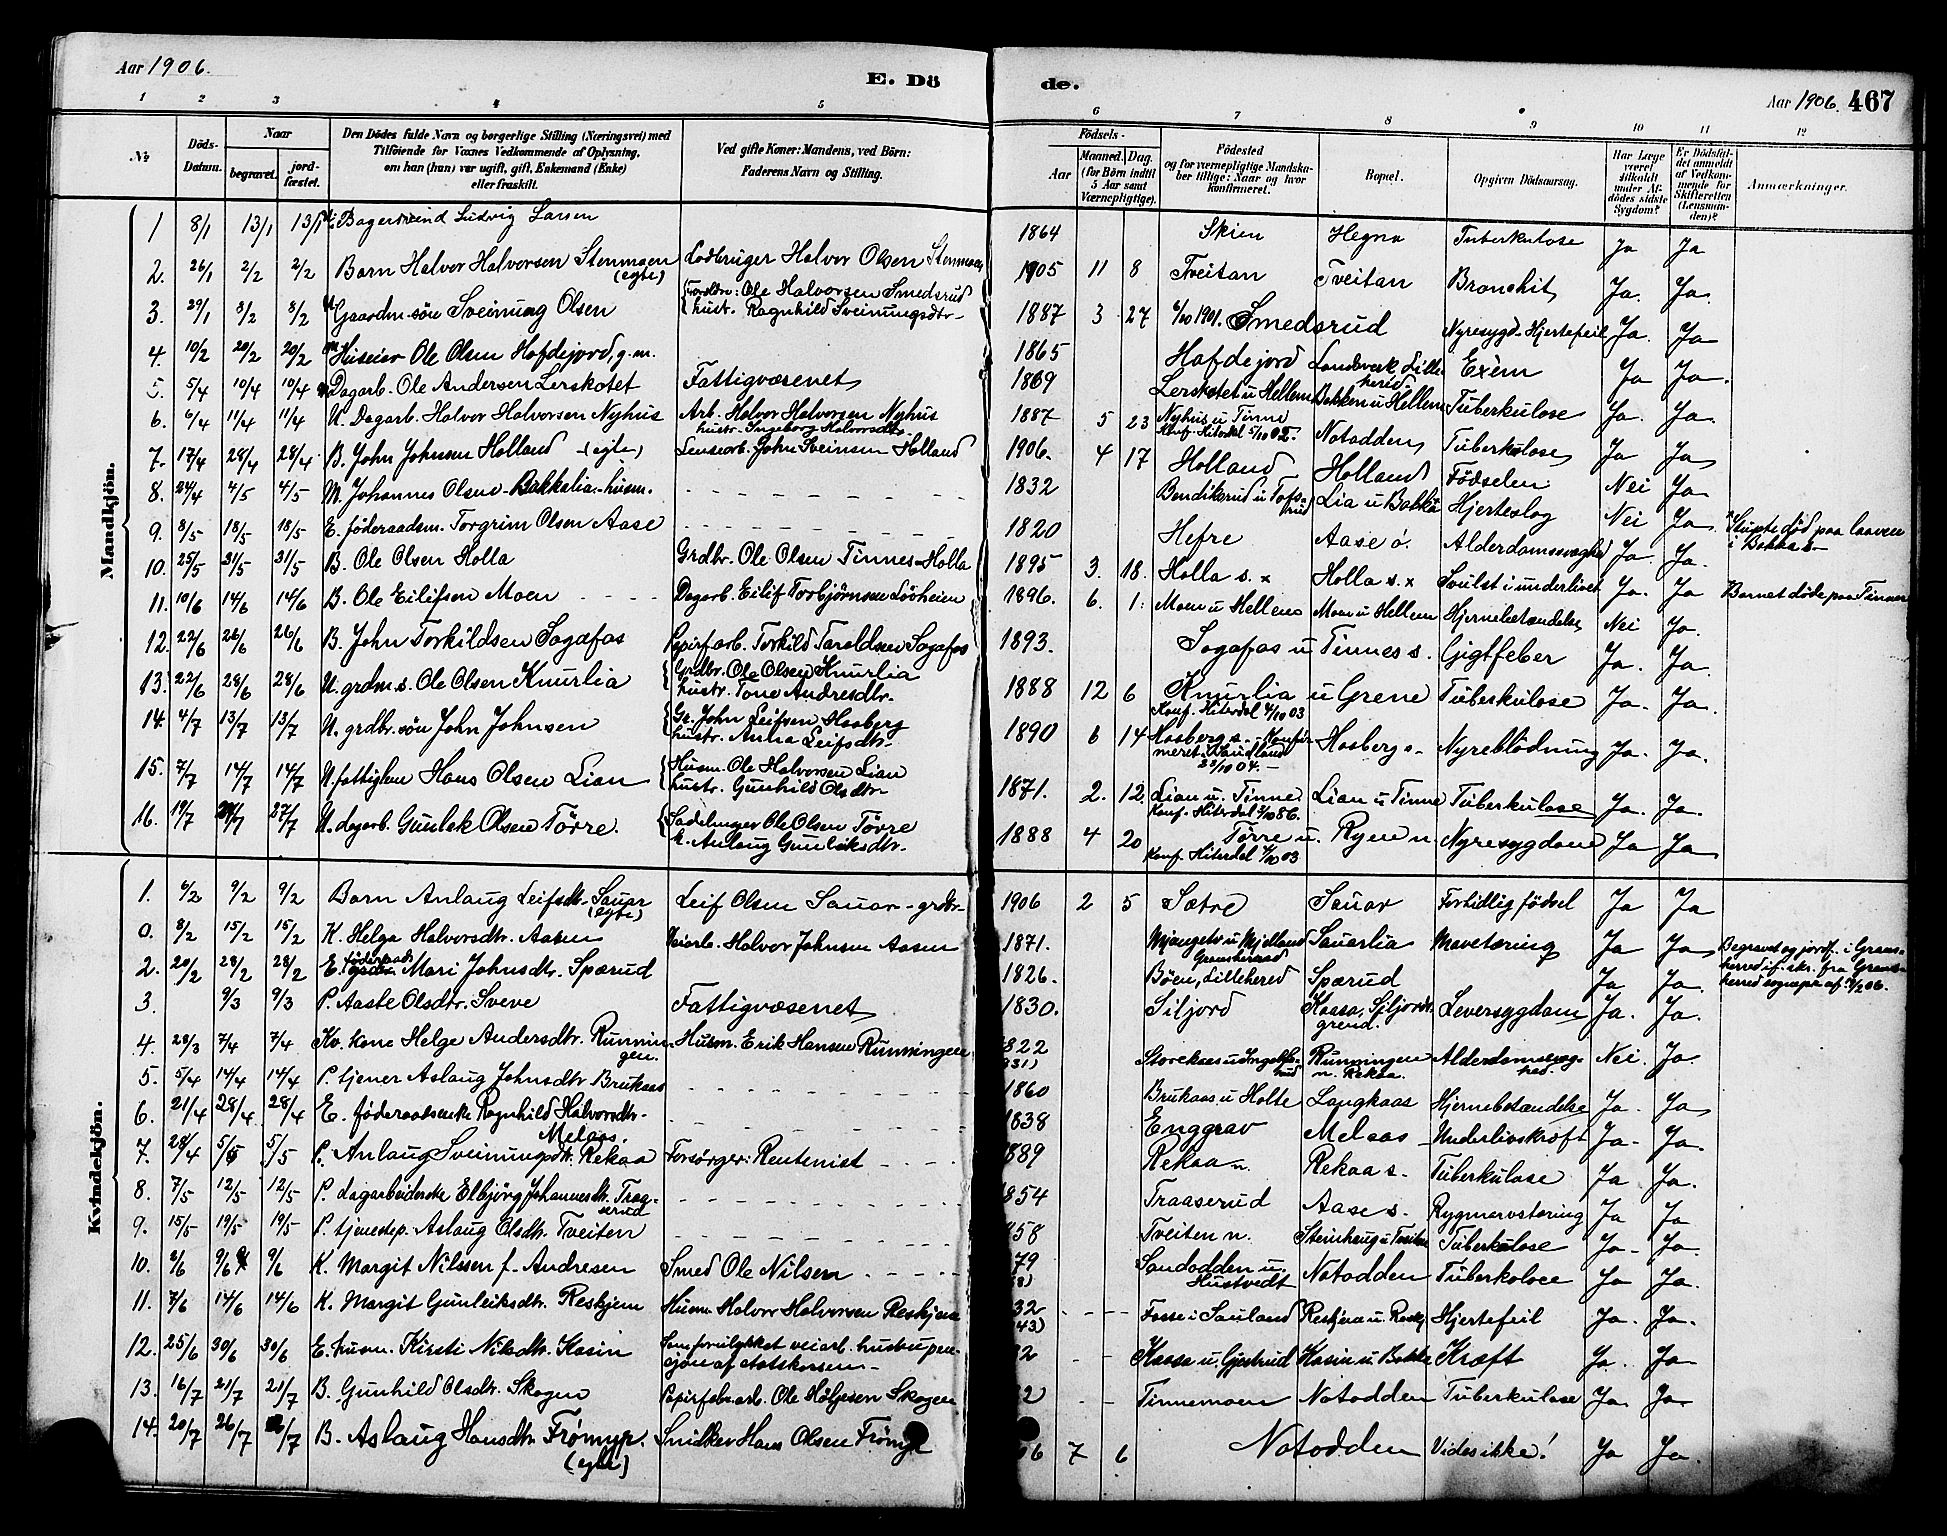 Aar 1906.
E. Dö
de.
Aar 1906. 467
1 2 3 4 5 6 7 8 9 10 11 12
No
Döds-Datum.
Naar
begravet.
jordfæstet.
Den Dödes fulde Navn og borgerlige Stilling (Næringsvei) med
Tilföiende for Voxnes Vedkommende af Oplysning,
om han (hun) var ugift, gift, Enkemand (Enke)
eller fraskilt.
Ved gifte Koner: Mandens, ved Börn:
Faderens Navn og Stilling.
Födsels-
Aar
Maaned. Dag.
(for Börn indtil
5 Aar samt
Værnepligtige).
Födested
og for værnepligtige Mandska-
ber tillige: Naar og hvor
konfirmeret.
Bopæl.
Opgiven Dödsaarsag.
Har Læge
været
tilkaldt
under Af-
dödes sidste
Sygdom?
Er Dödsfal-
det anmeldt
af Vedkom-
mende for
Skifteretten
(Lensman-
den)?
Anmærkninger.
Mandkjön.
1 8/1 13/1 13/1 Bagersvend Ludvig Larsen 1864 Skien Hegna Tuberkulose Ja Ja
2. 26/1 2/2 2/2 Barn Halvor Halvorsen Stenmoen (egte) Lodbruger Halvor Olsen Stenmoen 1905 11 8 Tveitan Tveitan Bronchit Ja. Ja.
3. 29/1 8/2 8/2 Gaardm. sön Sveinung Olsen Forældre: Ole Halvorsen Smedsrud hustr. Ragnhild Sveinungsdtr. 1887 3 27 6/10 1901. Smedsrud Nyresygd. Hjertefeil Ja. Ja
4. 10/2 20/2 20/2 Huseier Ole Olsen Hafdejord, g.m. 1865 Hafdejord Landsverk Lilleherid Exem Ja Ja.
5. 5/4 10/4 10/4 Dagarb. Ole Andersen Lerskotet Fattigvæsenet 1869 Lerskotet u Hellem Bakken u Hellem Tuberkulose Ja. Ja.
6. 6/4 11/4 11/4 U. Dagarb. Halvor Halvorsen Nyhus Arb. Halvor Halvorsen Nyhus hustr. Ingeborg Halvorsdtr 1887 5 23 Nyhus u Tinne Konf. Hiterdal 5/10 02. Notodden Tuberkulose Ja Ja
7. 17/4 28/4 28/4 B. John Johnsen Holland (egte) Lensearb. John Sveinsen Holland 1906. 4 17 Holland Holland Födselen Nei Ja
8. 24/4 4/5 4/5 M. Johannes Olsen Bakkalia husm. 1832 Bendiksrud u Tofsrud Lia u Bakka Hjerteslag Nei Ja Stupte död paa laaven i Bakka s.
9. 8/5 18/5 18/5 E. föderaadsm. Torgrim Olsen Aase 1820 Hefre Aase ö. Alderdomssvaghed Ja Ja.
10. 25/5 31/5 31/5 B. Ole Olsen Holla Grdbr. Ole Olsen Tinnes-Holla 1895 3. 18. Holla s. x Holla s. x Svulst i underlivet Ja. Ja Barnet døde paa Tinnes
11. 10/6 14/6 14/6 B. Ole Eilifsen Moen Dagarb. Eilif Torbjørnsen Lövheim 1896. 6. 1. Moen u Hellem Moen u Hellem Hjernebetændelse Nei Ja.
12. 22/6 26/6 26/6 B. John Torkildsen Sagafos Papirfarb. Torkild Taraldsen Sagafos 1893. Sagafos u Tinnes s. Gigtfeber Ja. Ja.
13. 22/6 28/6 28/6 U. grdm. s. Ole Olsen Knurlia Grdbr. Ole Olsen Knurlia hustr. Tone Andresdtr. 1888 12 6 Knurlia u Grene Konf. Hiterdal 4/10 03 Tuberkulose Ja. Ja.
14. 4/7 13/7 13/7 U. grdbr. sön John Johnsen Gr. John Leifsen Haaberg hustr. Anna Leifsdtr. 1890 6 14 Haaberg s. - Konfirmeret i Sauland 23/10 04. Haaberg s. Nyreblödning Ja. Ja.
15. 7/7 14/7 14/7 U. fattiglem Hans Olsen Lian Husm. Ole Halvorsen Lian hustr. Gunhild Olsdtr. 1871. 2. 12. Lian u. Tinne Konf. Hiterdal 3/10 86. Lian u Tinne Tuberkulose Ja. Ja.
16. 19/7 27/7 27/7 U. dagarb. Gunlek Olsen Törre. Sadelmager Ole Olsen Törre k. Anlaug Gunleiksdtr. 1888 4 20 Törre u. Ryen n. Konf. Hiterdal 4/10 03 Nyresygdom Ja Ja
Kvindekjön.
1. 6/2 9/2 9/2 Barn Anlaug Leifsdtr. Sauar (egte) Leif Olsen Sauar - grdbr. 1906 2 5 Sætre Sauar Fortidlig födsel Ja Ja
0. 8/2 15/2 15/2 K. Helga Halvorsdtr. Aasen Veiarb. Halvor Johnsen Aasen 1871. Mjaugetv u Mjelland Gransherad Sauarlia Mavetæring Ja Ja Begravet og jordf. i Gransherred if. skr. fra Gransherred sognepr. af 06.
2. 20/2 28/2 28/2 E. föderaads Mari Johnsdtr. Spærud 1826. Böen, Lilleherad Spærud Ja Ja.
3. 9/3 9/3 P. Aaste Olsdtr. Sveve Fattigvæsenet 1830. Siljord Kaasa, Siljordsgrend. Leversygdom Ja. Ja.
4. 28/3 7/4 7/4 Kv. kone Helge Andersdtr. Runningen. Husm. Erik Hansen Runningen 822 831) Storekaas u Ingolfsrud Runningen n. Rekaa. Alderdomssvaghed. Nei. Ja.
5. 5/4 14/4 14/4 P. tjener Aslaug Johnsdtr Brukaas 1860 Brukaas u Holte Langkaas Hjernebetændelse Ja. Ja
6. 21/4 28/4 28/4 E. föderaadsenke Ragnhild Halvorsdtr. Melaas. 1838 Enggrav Melaas Underlivskræft Ja. Ja.
7. 28/4 5/5 5/5 P. Anlaug Sveinungsdtr. Rekaa Forsörger: Rentenist 889 Rekaa n. Rekaa s. Tuberkulose Ja Ja.
8. 7/5 12/5 12/5 P. dagarbeiderske Elbjörg Johannesdtr. Traaserud 854 Traaserud Aase s. Rygmarvstæring Ja Ja
9. 15/5 19/5 19/5 P. tjenestep. Aslaug Olsdtr. Tveiten 858 Tveiten n. Steinhaug u Tveiten Tuberkulose Ja. Ja.
10. 2/6 9/6 9/6 K. Margit Nilssen f. Andresen Smed Ole Nilsen 79 Sandodden u. Hustvedt Notodden Tuberkulose Ja Ja.
11. 7/6 14/6 14/6 K. Margit Gunleiksdtr. Reskjem Husm. Halvor Halvorsen Reskjem 32 43) Fosse i Sauland Reskjem u. Hjertefeil Ja. Ja.
12. 25/6 30/6 30/6 E. husm. Kirsti Nilsdtr. Kasin Som forulykket veiarb. hustru pensjon af statskassen. 32 Kaasa u. Gjestrud Kasin u. Bakka Kræft Ja. Ja
13. 16/7 21/7 21/7 B. Gunhild Olsdtr. Skogen Papirfabr.arb. Ole Höljesen Skogen 2 Tinnemoen Notodden Tuberkulose Ja. Ja.
14. 20/7 26/7 26/7 B. Aslaug Hansdtr. Frömyr. (egte) Snidker Hans Olsen Frömyr 06 7 6 Notodden Vides ikke! Ja Ja.